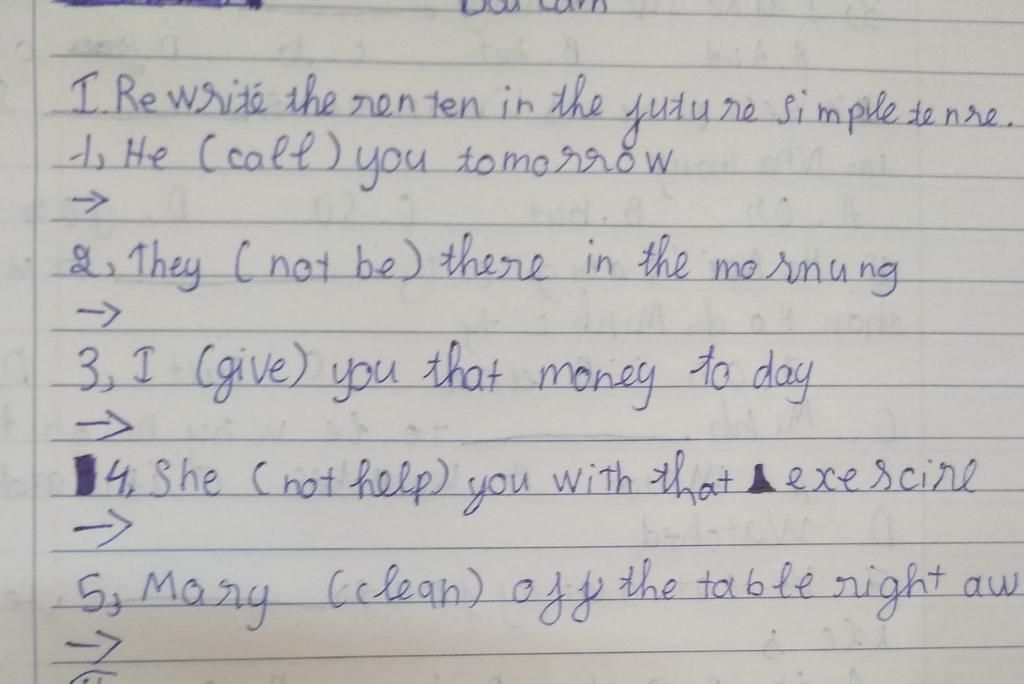 You can
I. Rewrite the renten in the future simple tenre.
1, He (call) you tomorrow
→
2, They (not be) there in the mornung
→
3, I (give) you that money to day
→
4, She (not help) you with that exercire
→
5, Mary (clean) off the table right aw
→